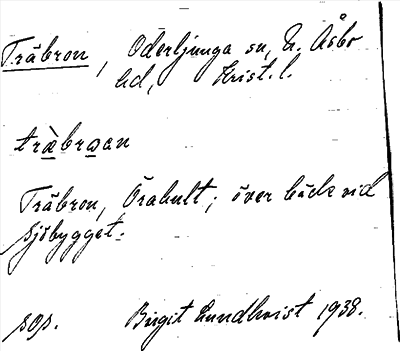 Träbron, Oderljunga sn, N. Åsbo
hd, Krist. l.
träbroən
Träbron, Örahult; över bäck vid
Sjöbygget.
sop. Birgit Lundkvist 1938.